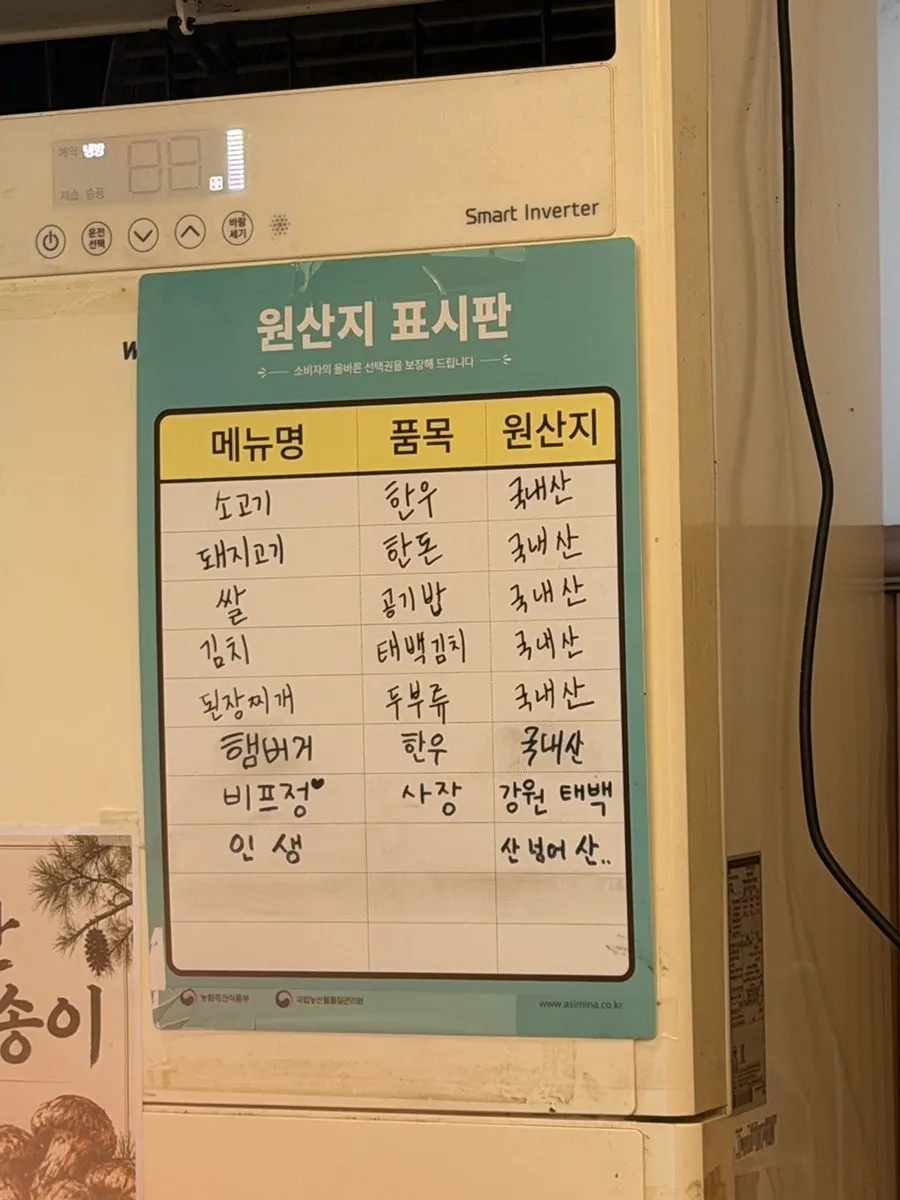 예약 냉방
제습 송풍
운전
선택
바람
세기
Smart Inverter
원산지 표시판
소비자의 올바른 선택권을 보장해 드립니다
메뉴명 품목 원산지
소고기 한우 국내산
돼지고기 한돈 국내산
쌀 공기밥 국내산
김치 태백김치 국내산
된장찌개 두부류 국내산
햄버거 한우 국내산
비프정♥ 사장 강원 태백
인생 산 넘어 산..
농림축산식품부 국립농산물품질관리원 www.asimina.co.kr
송이